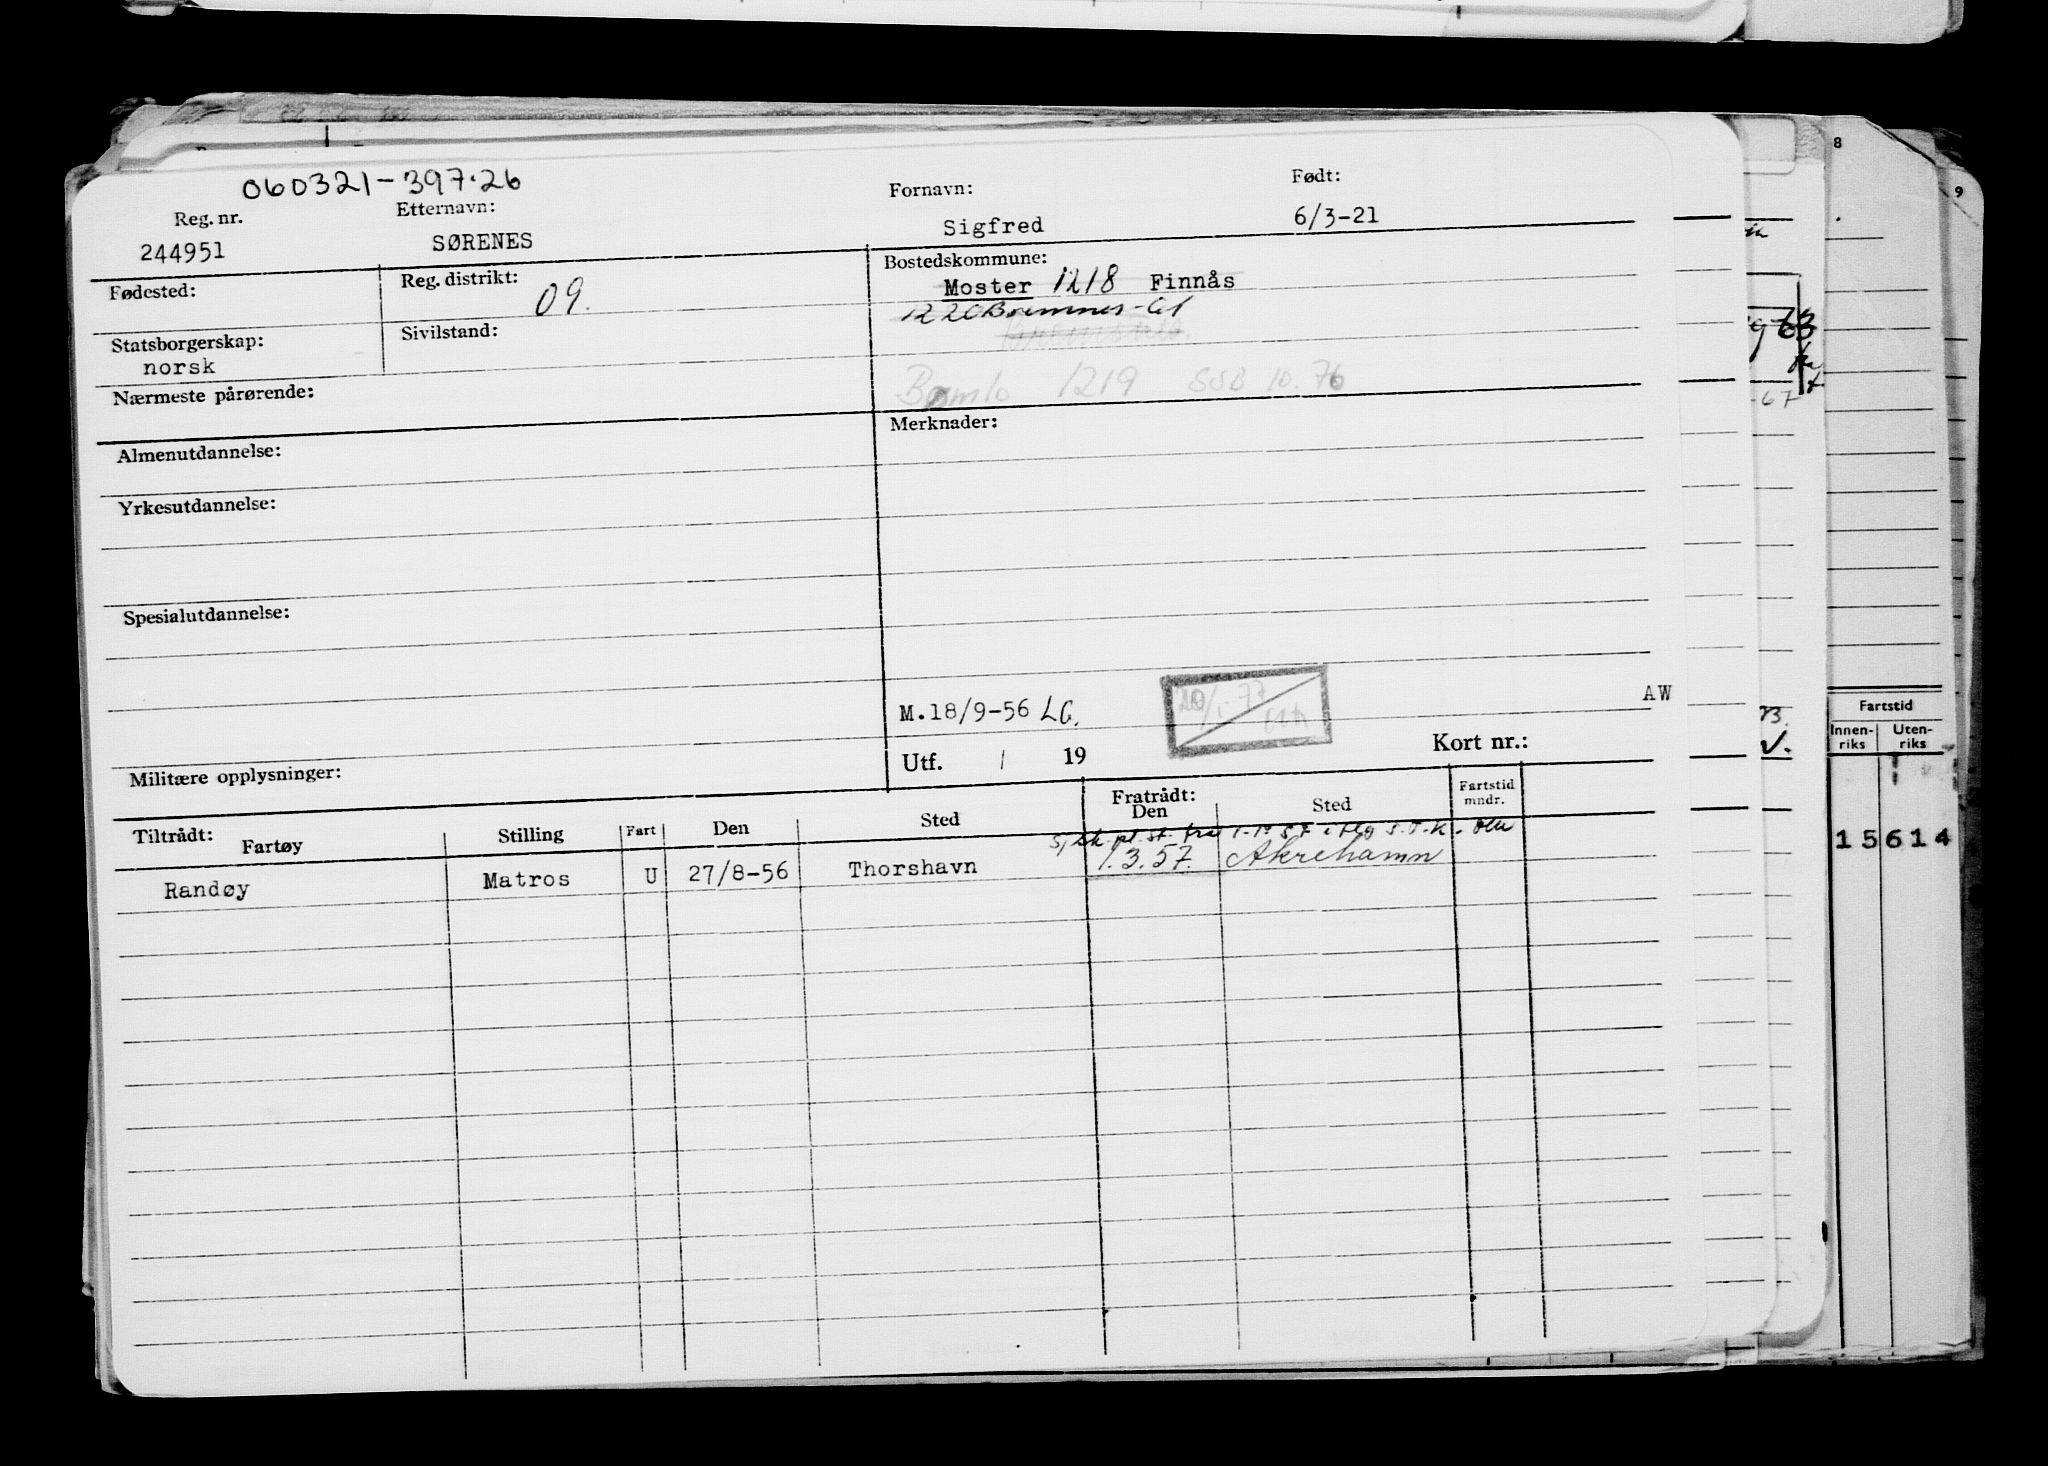 060321-397.26
Reg. nr. Etternavn: Fornavn: Født:
244951 SØRENES Sigfred 6/3-21
Fødested: Reg. distrikt: 09. Bostedskommune:
Moster 1218 Finnås
1220 Bremnes
Statsborgerskap: Sivilstand:
norsk
Bømlo 1219 SSB 10.76
Nærmeste pårørende:
Almenutdannelse: Merknader:
Yrkesutdannelse:
Spesialutdannelse:
M.18/9-56 LG. AW
Militære opplysninger: Utf. / 19 Kort nr.:
Tiltrådt: Fratrådt:
Fartøy Stilling Fart Den Sted Den Sted Fartstid mndr.
Randøy Matros U 27/8-56 Thorshavn 1.3.57. Åkrehamn
8
9
-67
Fartstid
Innen-riks Uten-riks
15614